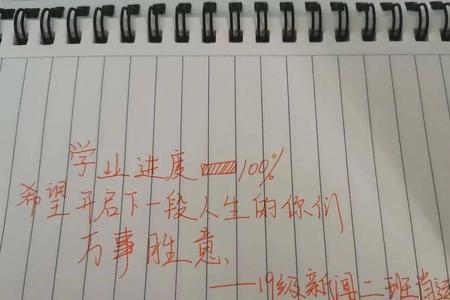 学业进度 100%
希望开启下一段人生的你们
万事胜意、
——19级新闻二班肖